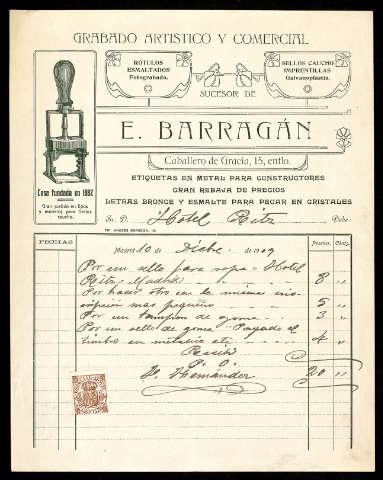 GRABADO ARTISTICO Y COMERCIAL
RÓTULOS
ESMALTADOS
Fotograbado.
SELLOS CAUCHO
IMPRENTILLAS
Galvanoplastia.
SUCESOR DE
E. BARRAGÁN
Caballero de Gracia, 15, entlo.
Casa fundada en 1882
Gran surtido en tipos
y material para Sellos
caucho.
ETIQUETAS EN METAL PARA CONSTRUCTORES
GRAN REBAJA DE PRECIOS
LETRAS BRONCE Y ESMALTE PARA PEGAR EN CRISTALES
Sr. D. Hotel Ritz Debe:
FECHAS
Pesetas. Cénts.
Madrid 10 de Dicbre de 1909
Por un sello para ropa "Hotel
Ritz" Madrid 8 "
Por hacer otro con la misma ins-
cripción mas pequeño 5 "
Por un tampon de goma 3 "
Por un sello de goma "Pagado el
timbre en metalico etc. 4 "
Recibí 20 "
P. O.
Hernández